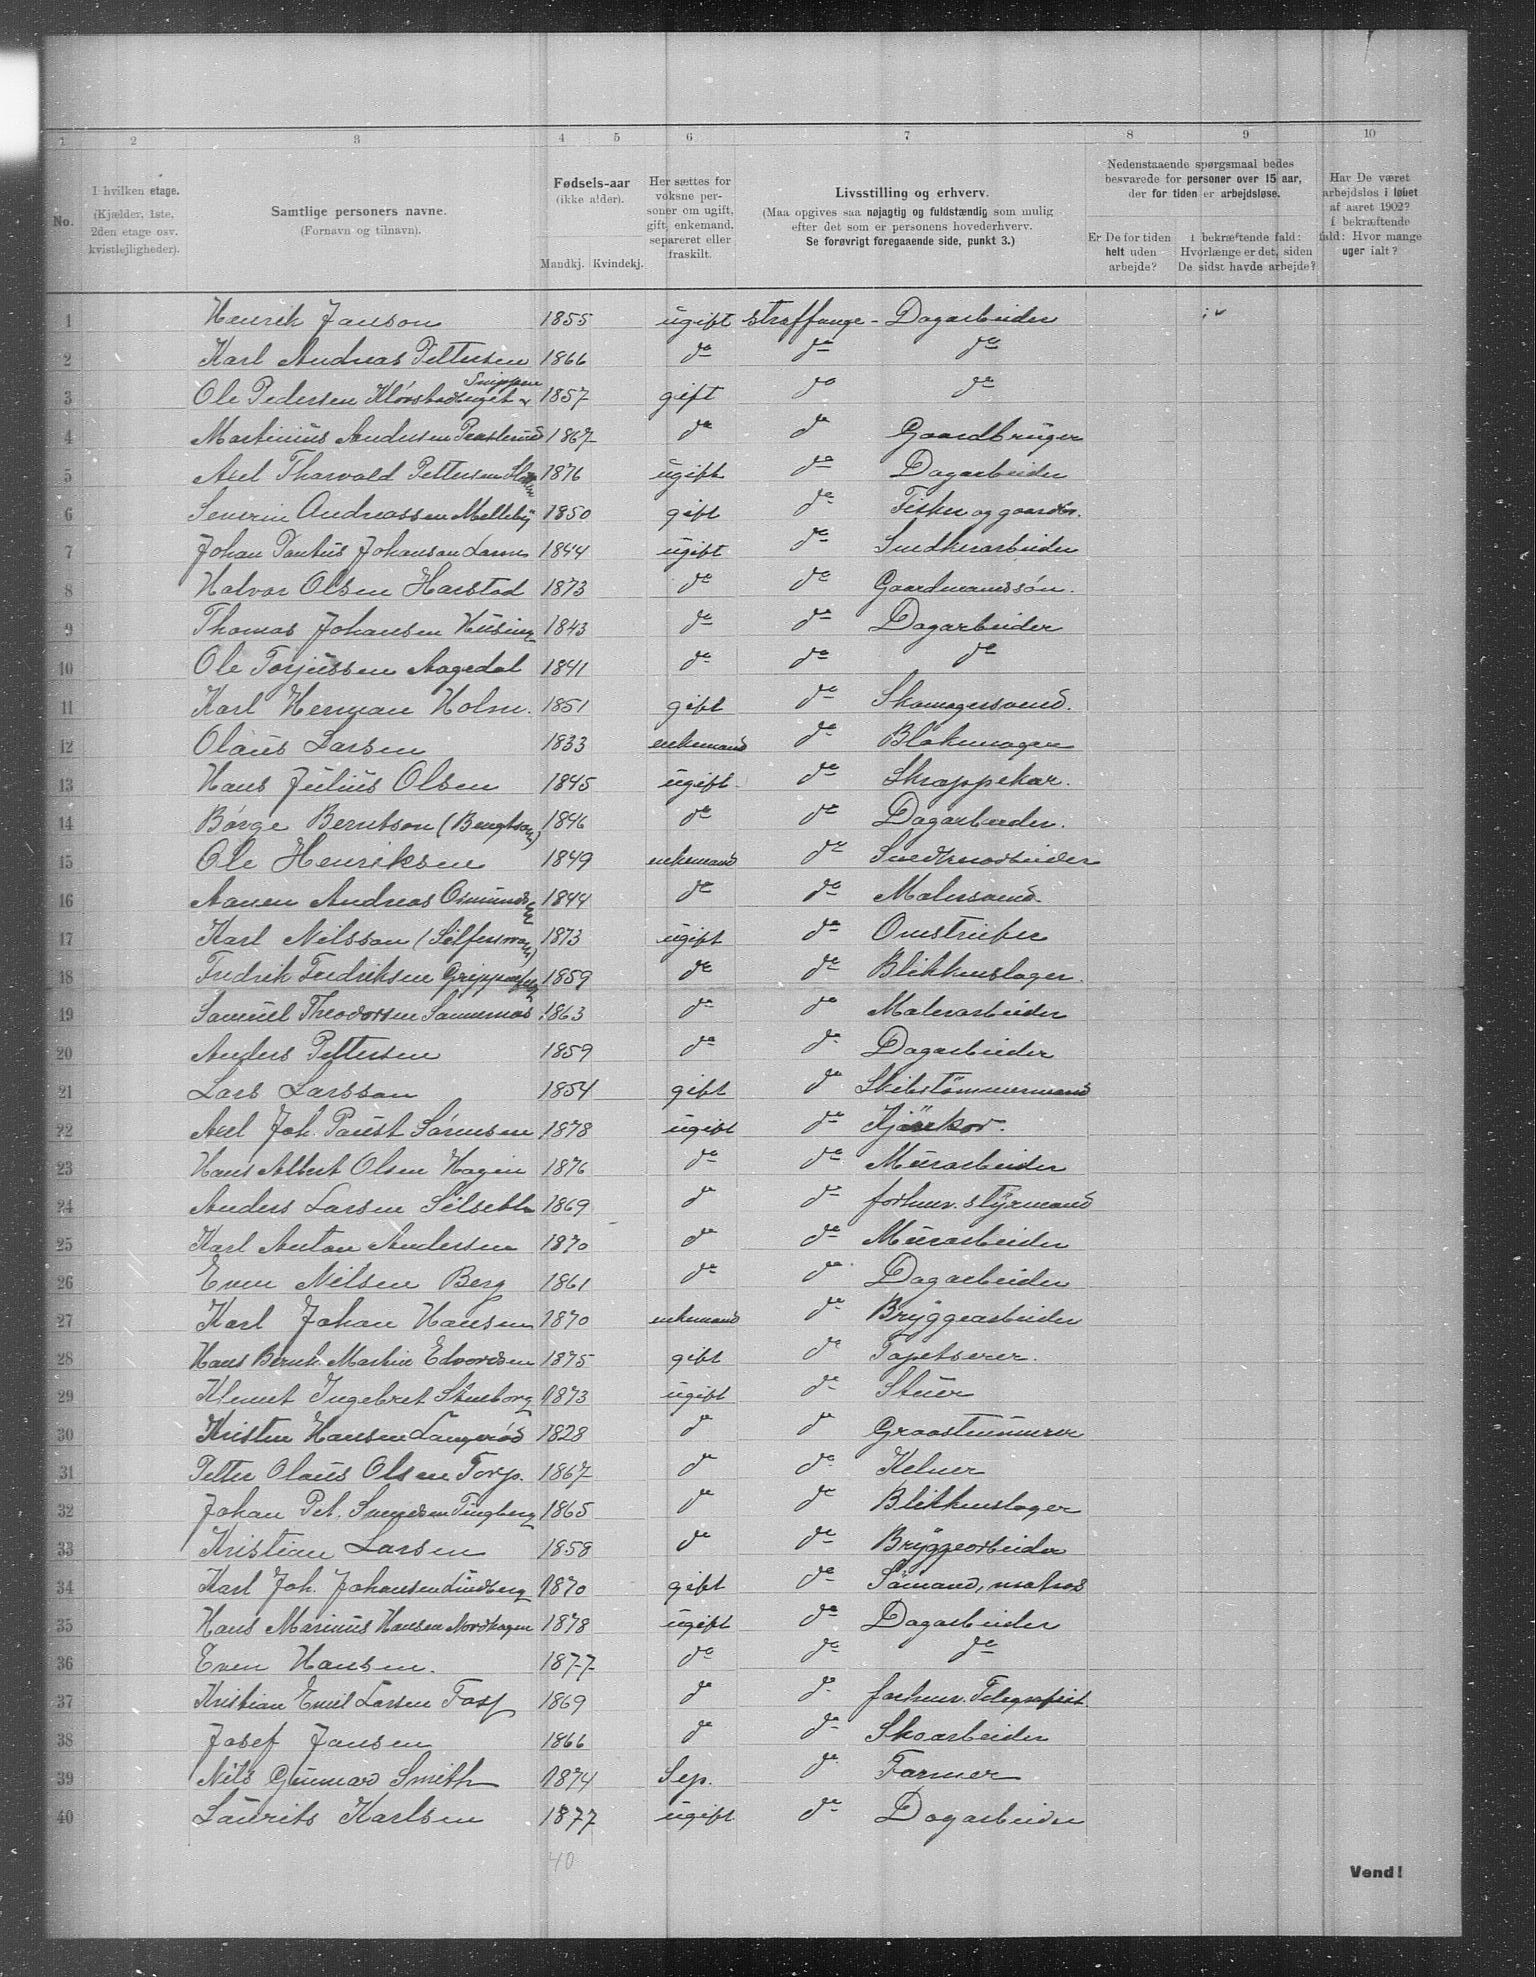 1 2 3 4 5 6 7 8 9 10
No.
I hvilken etage.
(Kjælder, 1ste, 2den etage osv. kvistlejligheder).
Samtlige personers navne.
(Fornavn og tilnavn).
Fødsels-aar
(ikke alder).
Mandkj. Kvindekj.
Her sættes for voksne personer om ugift, gift, enkemand, separeret eller fraskilt.
Livsstilling og erhverv.
(Maa opgives saa nøjagtig og fuldstændig som mulig efter det som er personens hovederhverv.
Se forøvrigt foregaaende side, punkt 3.)
Nedenstaaende spørgsmaal bedes besvarede for personer over 15 aar, der for tiden er arbejdsløse.
Er De for tiden helt uden arbejde?
I bekræftende fald: Hvorlænge er det, siden De sidst havde arbejde?
Har De været arbejdsløs i løbet af aaret 1902? I bekræftende fald: Hvor mange uger ialt?
1 Henrik Janson 1855 ugift straffange - Dagarbeider
2 Karl Andreas Pettersen 1866 do do do
3 Ole Pedersen Kløvstadeiget Snippen 1857 gift do do
4 Martinius Andersen 1867 do do Gaardbruger
5 Axel Tharvald Pettersen 1876 ugift do Dagarbeider
6 Severin Andreassen Melleby 1850 gift do Fisker og gaardbr.
7 Johan Pontus Johanson Larm 1844 ugift do Snedkerarbeider
8 Halvor Olsen Harstad 1873 do do Gaardmandssøn.
9 Thomas Johansen Husing 1843 do do Dagarbeider
10 Ole Torjussen Aagedal 1841 do do do
11 Karl Herman Holm. 1851 gift do Skomagersvend.
12 Olaus Larsen 1833 enkemand do Blokmager
13 Hans Julius Olsen 1845 ugift do Skrappekar.
14 Børge Berntson (Bengtson) 1846 do do Dagarbeider.
15 Ole Henriksen 1849 enkemand do Snedkerarbeider
16 Aanen Andreas Osmundsen 1844 do do Malersvend.
17 Karl Nilsson (Silfversvan) 1873 ugift do Omstreifer
18 Fredrik Fredriksen 1859 do do Blikkenslager.
19 Samuel Theodorsen Sannernæs 1863 do do Malerarbeider
20 Anders Pettersen 1859 do do Dagarbeider
21 Lars Larsson 1854 gift do Skibstömmermand
22 Axel Joh. Paust Sørensen 1878 ugift do Kjörekar.
23 Hans Albert Olsen Hagen 1876 do do Murarbeider
24 Anders Larsen Silseth 1869 do do forhenv. styrmand
25 Karl Anton Andersen 1870 do do Murarbeider
26 Even Nilsen Berg 1861 do do Dagarbeider
27 Karl Johan Hansen 1870 enkemand do Bryggearbeider
28 Hans Bernt Martin Edvardsen 1875 gift do Tapetserer.
29 Klemet Ingebret Stenborg 1873 ugift do Stuer
30 Kristen Hansen Langerød 1828 do do Graastensmurer
31 Petter Olaus Olsen Torp. 1867 do do Kelner
32 Johan Pet. Svendsen Tingberg 1865 do do Blikkenslager
33 Kristian Larsen 1858 do do Bryggearbeider
34 Karl Joh. Johansen Lindberg 1870 gift do Sömand, matros
35 Hans Marinus Hansen Nordhagen 1878 ugift do Dagarbeider
36 Even Hansen. 1877 do do do
37 Kristian Emil Larsen Fast 1869 do do forhenv. Telegrafist.
38 Josef Jansen 1866 do do Skoarbeider
39 Nils Gunnar Smith 1874 Sep. do Farmer
40 Laurits Karlsen 1877 ugift do Dagarbeider
40
Vend!